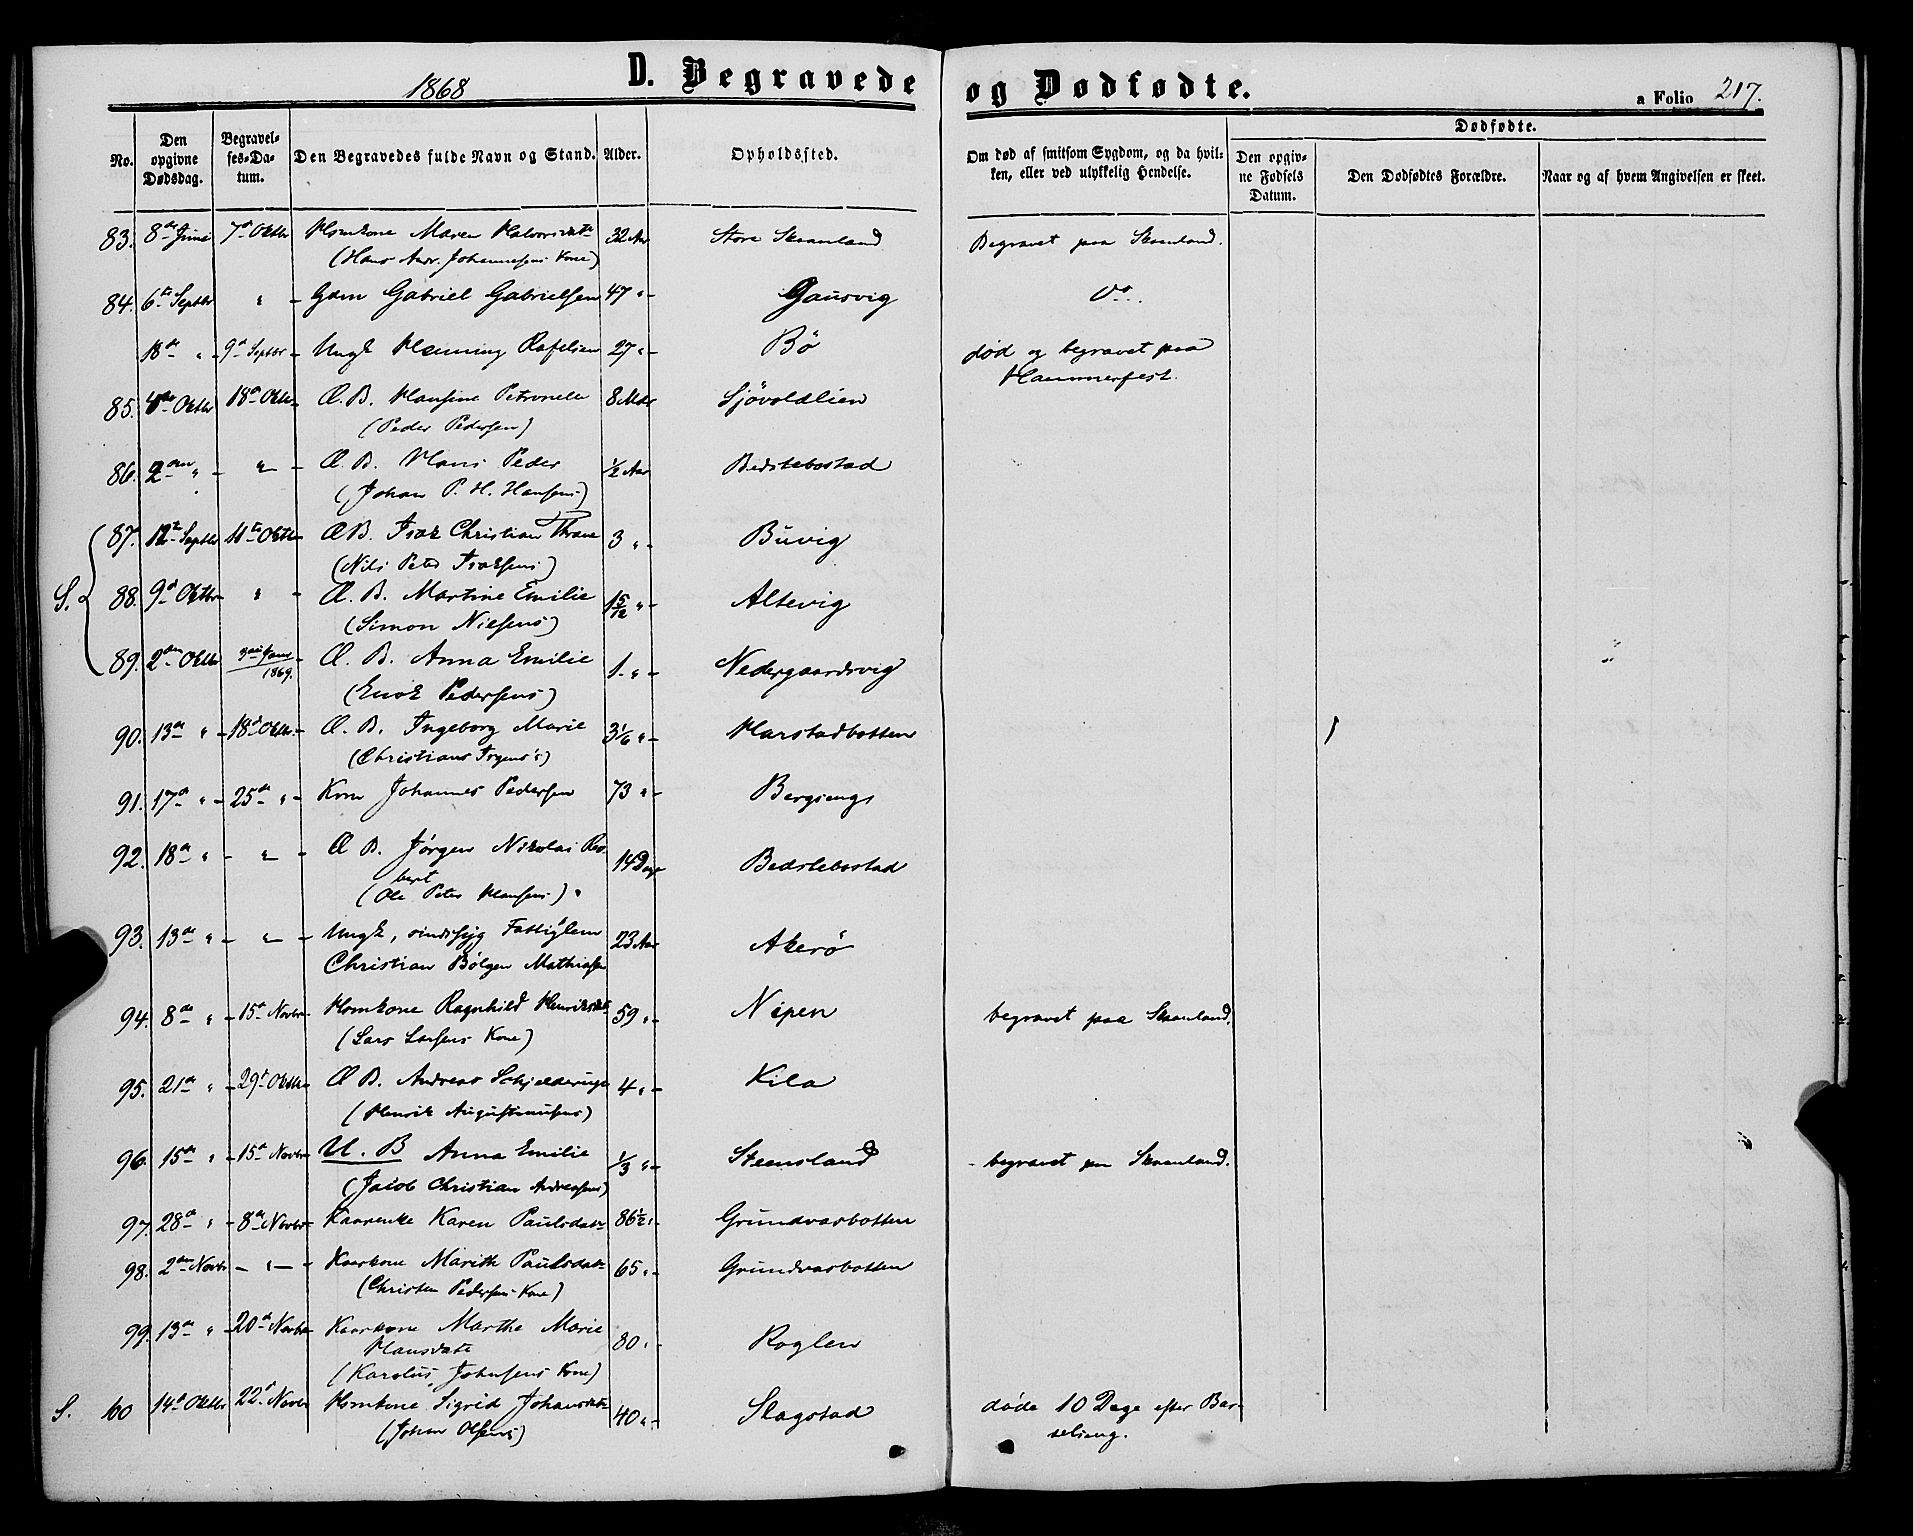 1868 D. Begravede og Dødfødte. a Folio 217.
No. Den opgivne Dødsdag. Begravelses-Datum. Den Begravedes fulde Navn og Stand. Alder. Opholdssted. Om død af smitsom Sygdom, og da hvilken, eller ved ulykkelig Hendelse. Dødfødte. Den opgivne Fødsels Datum. Den Dødfødtes Forældre. Naar og af hvem Angivelsen er skeet.
83. 8de Juni 7de Oktbr Hsmkone Maren Halvorsdatr 32 Aar Store Skaanland Begravet paa Skaanland.
(Hans Andr. Johannesens Kone)
84. 6te Septbr " - Gdm Gabriel Gabrielsen 47 " - Gausvig Do.
18de " - 9de Septbr - Ungk Henning Rafelsen 27 " - Bö død og begravet paa
Hammerfest.
85. 4de Oktbr 18de Oktbr Æ. B. Hansine Petronele 8 Mdr Sjövoldlien
(Peder Pedersen)
86. 2den " - " - Æ. B. Hans Peder ½ Aar Bedstebostad
(Johan P. H. Hansens)
87. 12te Septbr 11te Oktbr Æ B. Isak Christian Thrane 3 " - Buvig
(Nils Peter Isaksens)
S. 88. 9de Oktbr - " - Æ. B. Martine Emilie 1 5/12 " - Altevig
(Simon Nielsens)
89. 2den Oktbr 3die Janr 1869. Æ. B. Anna Emilie 1 " - Nedergaardsvig
(Enok Pedersens)
90. 13de " - 18de Oktbr. - Æ. B. Ingeborg Marie 3 1/6 " - Harstadbotten
(Christians Irgens's)
91. 17de " - 25de " - Johannes Pedersen 73 " - Bergsengs
92. 18de " - " - Æ B. Jörgen Nikolai Ro- 14 Dage Bedstebostad
bert
(Ole Peter Hansens)
93. 13de " - " - Ungk, sindssyg Fattiglem 23 Aar Akerö
Christian Bölgen Mathiassen
94. 8de " - 15de Novbr - Hsmkone Ragnhild Henriksdatr 59 " - Nipen begravet paa Skaanland.
(Lars Larsens Kone)
95. 21de " - 29de Oktbr - Æ B. Andreas Schjelderup 4 " - Kila
(Henrik Augustinusens)
96. 15de " - 15de Novbr U. B Anna Emilie 1/3 " - Steensland - begravet paa Skaanland.
(Jakob Christian Andreasens)
97. 28de " - 8de Novbr - Kaarenke Karen Paulsdatr 86 ½ " Grundvasbotten
98. 2den Novbr - " - Kaarkone Marith Paulsdatr 65 " - Grundvasbotten
(Christen Pedersens Kone)
99. 13de " - 20de Novbr - Kaarkone Marthe Marie 80 " - Roglen
Hansdatr
(Karolus Johnsens Kone)
S. 60 14de Oktbr 22de Novbr Hsmkone Sigrid Johansdatr 40 " - Slagstad døde 10 Dage efter Bar-
(Johan Olsens) selseng.